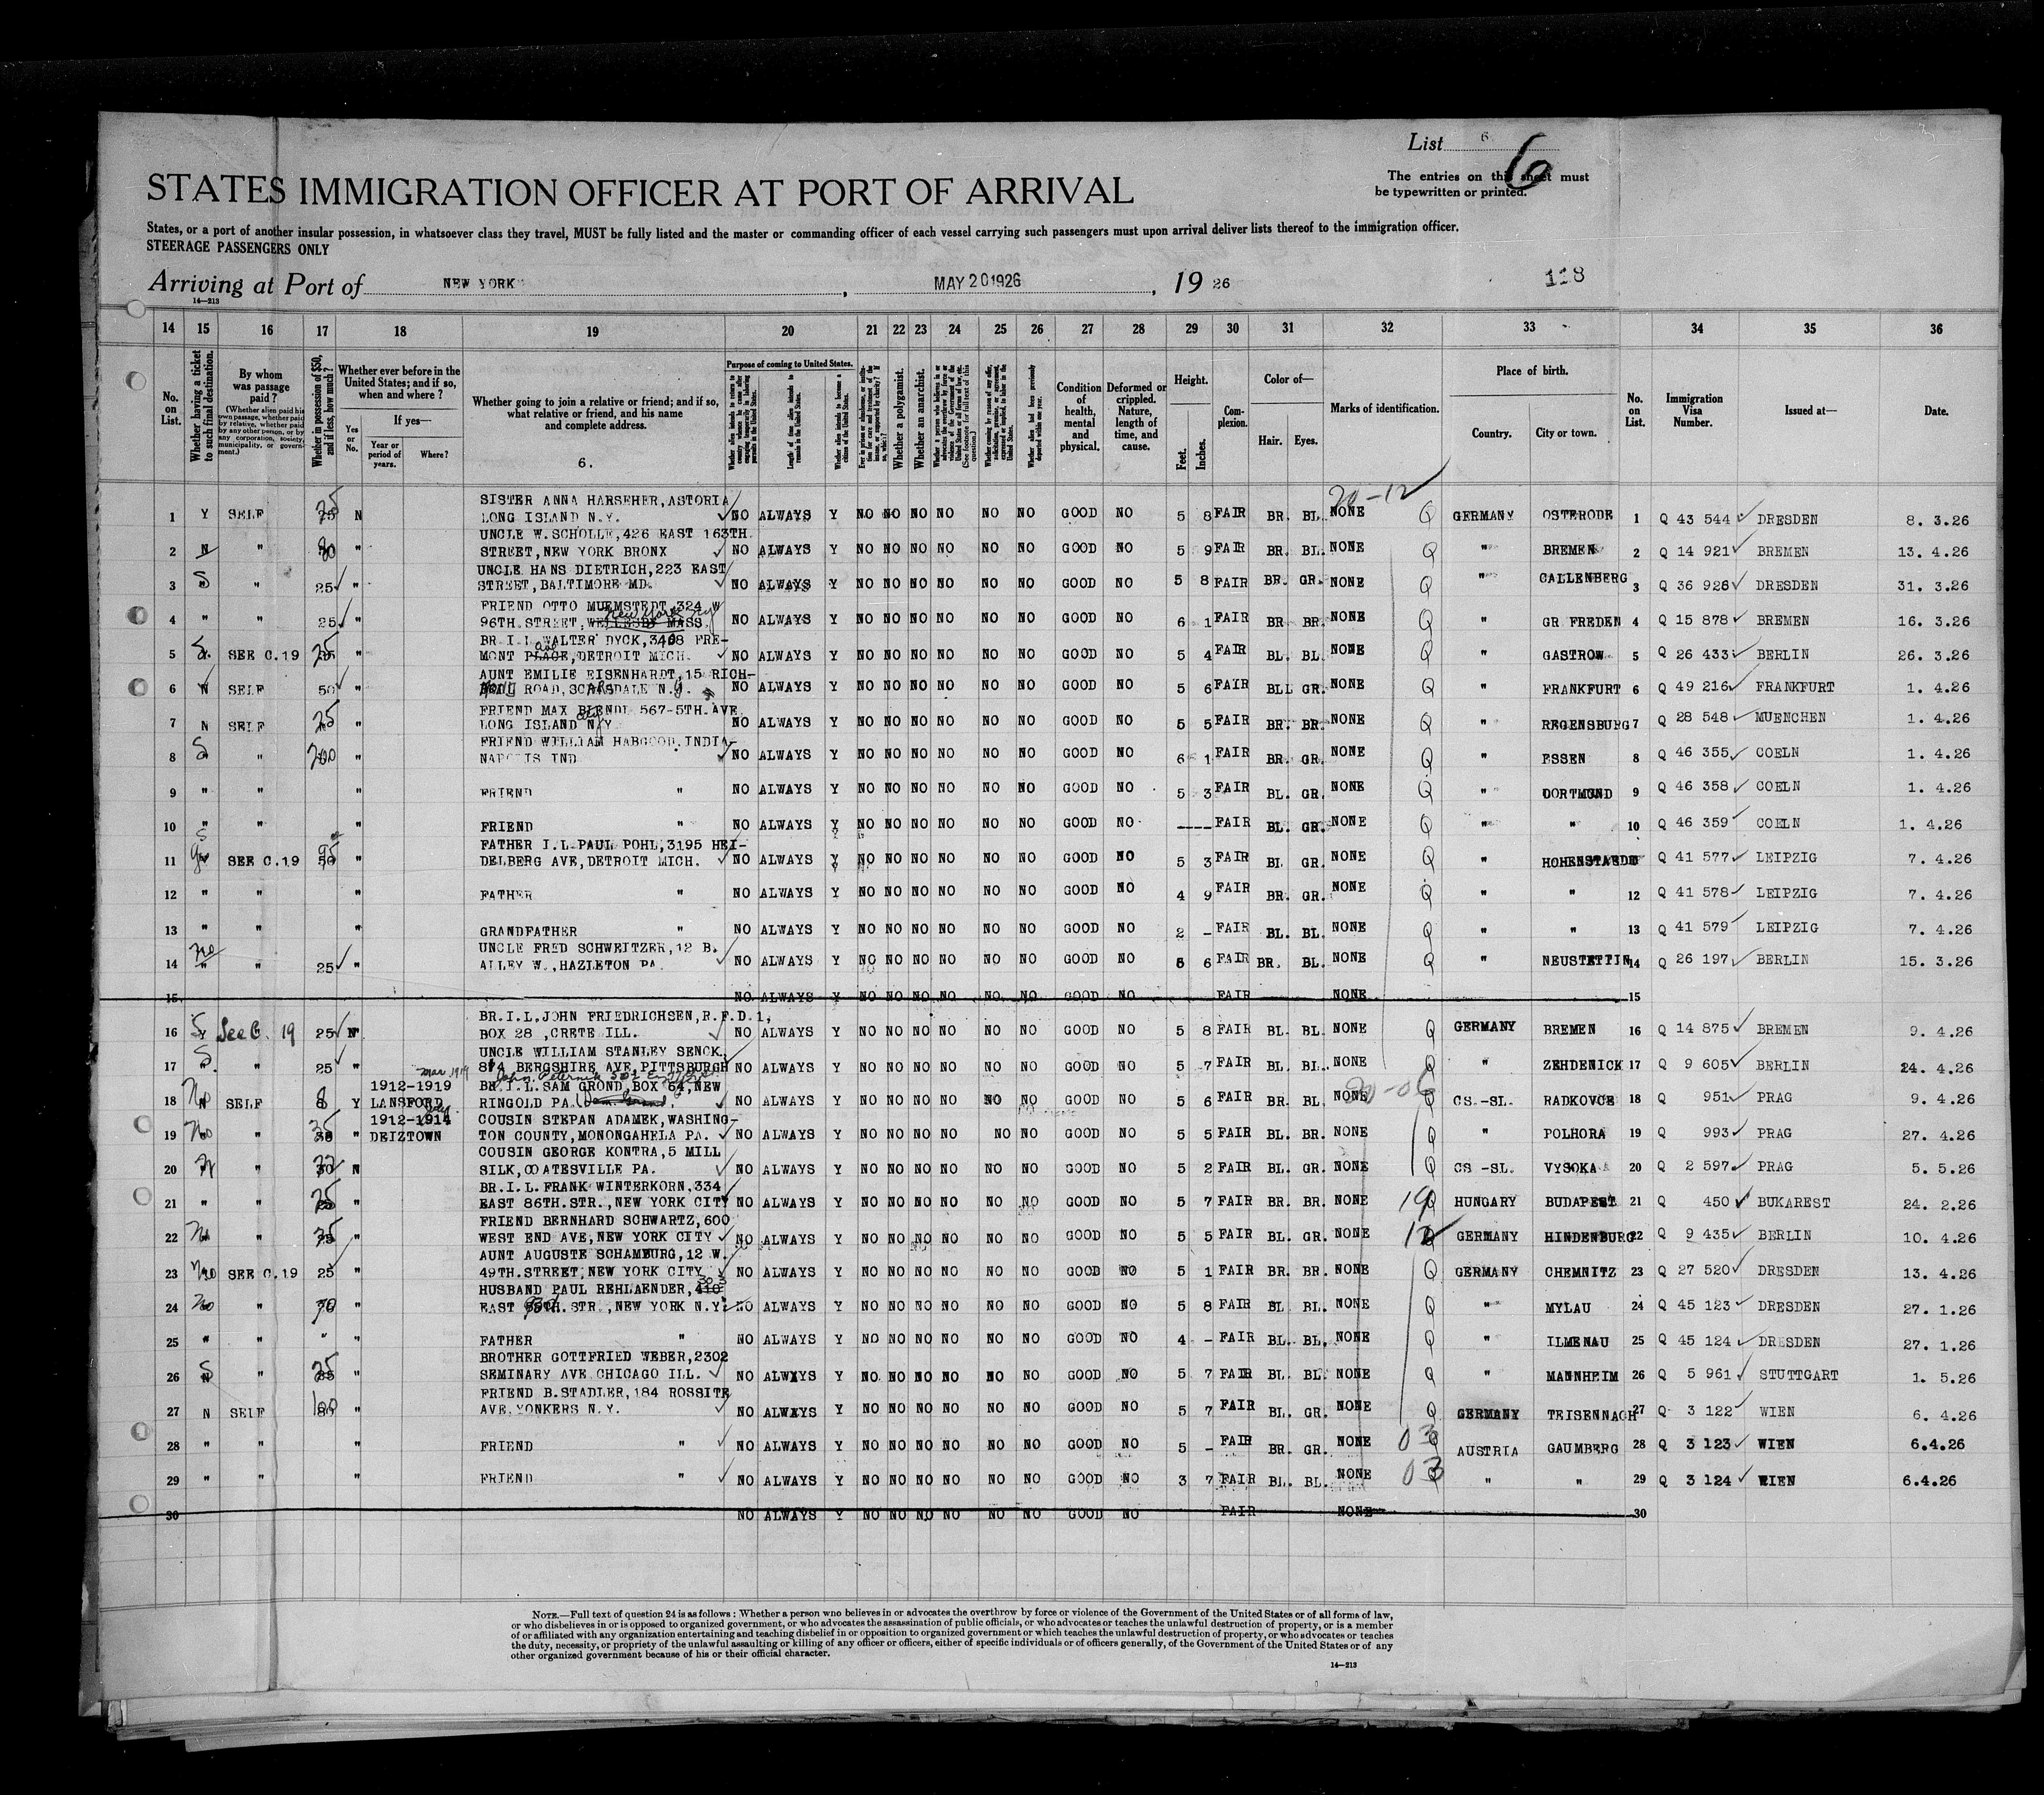 List 6
6
The entries on this sheet must
be typewritten or printed.
STATES IMMIGRATION OFFICER AT PORT OF ARRIVAL
States, or a port of another insular possession, in whatsoever class they travel, MUST be fully listed and the master or commanding officer of each vessel carrying such passengers must upon arrival deliver lists thereof to the immigration officer.
STEERAGE PASSENGERS ONLY
Arriving at Port of NEW YORK, MAY 20 1926, 19 26
118
14—213
14 15 16 17 18 19 20 21 22 23 24 25 26 27 28 29 30 31 32 33 34 35 36
No. on List.
Whether having a ticket to such final destination.
By whom was passage paid?
(Whether alien paid his own passage, whether paid by relative, whether paid by any other person, or by any corporation, society, municipality, or government.)
Whether in possession of $50, and if less, how much?
Whether ever before in the United States; and if so, when and where?
If yes—
Yes or No.
Year or period of years.
Where?
Whether going to join a relative or friend; and if so, what relative or friend, and his name and complete address.
6.
Purpose of coming to United States.
Length of time alien intends to remain in the United States.
Whether alien intends to become a citizen of the United States.
Whether a polygamist.
Whether an anarchist.
Condition of health, mental and physical.
Deformed or crippled. Nature, length of time, and cause.
Height.
Feet.
Inches.
Complexion.
Color of—
Hair.
Eyes.
Marks of identification.
Place of birth.
Country.
City or town.
No. on List.
Immigration Visa Number.
Issued at—
Date.
20-12
1 Y SELF 25 N SISTER ANNA HARSEHER, ASTORIA
LONG ISLAND N.Y. NO ALWAYS Y NO NO NO NO NO NO GOOD NO 5 8 FAIR BR. BL. NONE Q GERMANY OSTERODE 1 Q 43 544 DRESDEN 8. 3.26
2 N " " UNCLE W.SCHOLLE, 426 EAST 163TH.
STREET, NEW YORK BRONX NO ALWAYS Y NO NO NO NO NO NO GOOD NO 5 9 FAIR BR. BL. NONE Q " BREMEN 2 Q 14 921 BREMEN 13. 4.26
3 S " 25 " UNCLE HANS DIETRICH, 223 EAST
STREET, BALTIMORE MD. NO ALWAYS Y NO NO NO NO NO NO GOOD NO 5 8 FAIR BR. GR. NONE Q " CALLENBERG 3 Q 36 928 DRESDEN 31. 3.26
4 " " 25 " FRIEND OTTO MUEMSTEDT, 324 W
96TH.STREET, New York City MASS. NO ALWAYS Y NO NO NO NO NO NO GOOD NO 6 1 FAIR BR BR. NONE Q " GR FREDEN 4 Q 15 878 BREMEN 16. 3.26
5 S SEE C.19 25 " BR.I.L WALTER DYCK, 3408 FRE-
MONT PLACE, DETROIT MICH. NO ALWAYS Y NO NO NO NO NO NO GOOD NO 5 4 FAIR BL. BL. NONE Q " GASTROW 5 Q 26 433 BERLIN 26. 3.26
6 N SELF 50 AUNT EMILIE EISENHARDT, 15 RICH-
ROAD, SCARSDALE N.Y. NO ALWAYS Y NO NO NO NO NO NO GOOD NO 5 6 FAIR BLL GR. NONE Q " FRANKFURT 6 Q 49 216 FRANKFURT 1. 4.26
7 N SELF 25 " FRIEND MAX BLENDL 567-5TH.AVE.
LONG ISLAND city N.Y. NO ALWAYS Y NO NO NO NO NO NO GOOD NO 5 5 FAIR BR. BR. NONE Q " REGENSBURG 7 Q 28 548 MUENCHEN 1. 4.26
8 S " 200 " FRIEND WILLIAM HABGOOD, INDIA-
IND NO ALWAYS Y NO NO NO NO NO NO GOOD NO 6 1 FAIR BR. GR. NONE Q " ESSEN 8 Q 46 355 COELN 1. 4.26
9 " " " FRIEND " NO ALWAYS Y NO NO NO NO NO NO GOOD NO 5 3 FAIR BL. GR. NONE Q " DORTMUND 9 Q 46 358 COELN 1. 4.26
10 " " " FRIEND " NO ALWAYS Y NO NO NO NO NO NO GOOD NO ---- FAIR BL. GR. NONE Q " " 10 Q 46 359 COELN 1. 4.26
11 SEE C.19 50 " FATHER I.L.PAUL POHL, 3195 HEI-
DELBERG AVE, DETROIT MICH. NO ALWAYS Y NO NO NO NO NO NO GOOD NO 5 3 FAIR BL GR. NONE Q " 11 Q 41 577 LEIPZIG 7. 4.26
12 " " " FATHER " NO ALWAYS Y NO NO NO NO NO NO GOOD NO 4 9 FAIR BR. GR. NONE Q " " 12 Q 41 578 LEIPZIG 7. 4.26
13 " " " GRANDFATHER " NO ALWAYS Y NO NO NO NO NO NO GOOD NO 2 - FAIR BL. BL. NONE Q " " 13 Q 41 579 LEIPZIG 7. 4.26
14 no " 25 " UNCLE FRED SCHWEITZER, 12 B.
ALLEY W., HAZLETON PA. NO ALWAYS Y NO NO NO NO NO NO GOOD NO 5 6 FAIR BR. BL. NONE Q " NEUSTETTIN 14 Q 26 197 BERLIN 15. 3.26
15. NO ALWAYS Y NO NO NO NO NO NO GOOD NO FAIR NONE 15
16 Y See C. 19 25 N BR.I.L, JOHN FRIEDRICHSEN, R.F.D.1,
BOX 28 ,CRETE ILL. NO ALWAYS Y NO NO NO NO NO NO GOOD NO 5 8 FAIR BL. BL. NONE Q GERMANY BREMEN 16 Q 14 875 BREMEN 9. 4.26
17 S " 25 " UNCLE WILLIAM STANLEY SENCK,
814 BERGSHIRE AVE, PITTSBURGH NO ALWAYS Y NO NO NO NO NO NO GOOD NO 5 7 FAIR BL. BL. NONE Q " ZEHDENICK 17 Q 9 605 BERLIN 24. 4.26
20-06
18 No SELF 8 Y 1912-1919 Mar 1919 LANSFORD BR.I.L.SAM GROND, BOX 64, NEW
RINGOLD PA. NO ALWAYS Y NO NO NO NO NO NO GOOD NO 5 6 FAIR BR. BL NONE Q CS.-SL. RADKOVCE 18 Q 951 PRAG 9. 4.26
19 No " 35 " 1912-1914 DEIZTOWN COUSIN STEPAN ADAMEK, WASHING-
TON COUNTY, MONONGAHELA PA. NO ALWAYS Y NO NO NO NO NO NO GOOD NO 5 5 FAIR BL. BR. NONE Q " POLHORA 19 Q 993 PRAG 27. 4.26
20 N " N COUSIN GEORGE KONTRA, 5 MILL
SILK, COATESVILLE PA. NO ALWAYS Y NO NO NO NO NO NO GOOD NO 5 2 FAIR BL. GR. NONE Q CS -SL. VYSOKA 20 Q 2 597 PRAG 5. 5.26
21 " " 25 " BR.I.L. FRANK WINTERKORN, 334
EAST 86TH.STR., NEW YORK CITY NO ALWAYS Y NO NO NO NO NO NO GOOD NO 5 7 FAIR BR. BR. NONE 19 HUNGARY BUDAPEST 21 Q 450 BUKAREST 24. 2.26
22 No " " FRIEND BERNHARD SCHWARTZ, 600
WEST END AVE, NEW YORK CITY NO ALWAYS Y NO NO NO NO NO NO GOOD NO 5 5 FAIR BL. GR. NONE 12 GERMANY HINDENBURG 22 Q 9 435 BERLIN 10. 4.26
23 No SEE C.19 25 " AUNT AUGUSTE SCHAMBURG, 12 W.
49TH.STREET, NEW YORK CITY NO ALWAYS Y NO NO NO NO NO NO GOOD NO 5 1 FAIR BR. BR. NONE Q GERMANY CHEMNITZ 23 Q 27 520 DRESDEN 13. 4.26
24 No " 70 " HUSBAND PAUL REHLAENDER, 410 303
EAST STR., NEW YORK N.Y. NO ALWAYS Y NO NO NO NO NO NO GOOD NO 5 8 FAIR BL BL. NONE Q " MYLAU 24 Q 45 123 DRESDEN 27. 1.26
25 " " " " FATHER " NO ALWAYS Y NO NO NO NO NO NO GOOD NO 4 - FAIR BL. BL. NONE Q " ILMENAU 25 Q 45 124 DRESDEN 27. 1.26
26 S " 25 " BROTHER GOTTFRIED WEBER, 2302
SEMINARY AVE CHICAGO ILL. NO ALWAYS Y NO NO NO NO NO NO GOOD NO 5 7 FAIR BL. BL. NONE Q " MANNHEIM 26 Q 5 961 STUTTGART 1. 5.26
27 N SELF 100 " FRIEND B.STADLER, 184 ROSSITE
AVE.YONKERS N.Y. NO ALWAYS Y NO NO NO NO NO NO GOOD NO 5 7 FAIR BL. GR. NONE Q GERMANY TEISENNACH 27 Q 3 122 WIEN 6. 4.26
28 " " " FRIEND " NO ALWAYS Y NO NO NO NO NO NO GOOD NO 5 - FAIR BR. GR. NONE 03 AUSTRIA GAUMBERG 28 Q 3 123 WIEN 6.4.26
29 " " " FRIEND " NO ALWAYS Y NO NO NO NO NO NO GOOD NO 3 7 FAIR BL. BL. NONE 03 " " 29 Q 3 124 WIEN 6.4.26
30 NO ALWAYS Y NO NO NO NO NO NO GOOD NO FAIR NONE 30
NOTE.—Full text of question 24 is as follows: Whether a person who believes in or advocates the overthrow by force or violence of the Government of the United States or of all forms of law,
or who disbelieves in or is opposed to organized government, or who advocates the assassination of public officials, or who advocates or teaches the unlawful destruction of property, or is a member
of or affiliated with any organization entertaining and teaching disbelief in or opposition to organized government or which teaches the unlawful destruction of property, or who advocates or teaches
the duty, necessity, or propriety of the unlawful assaulting or killing of any officer or officers, either of specific individuals or of officers generally, of the Government of the United States or of any
other organized government because of his or their official character.
14—213